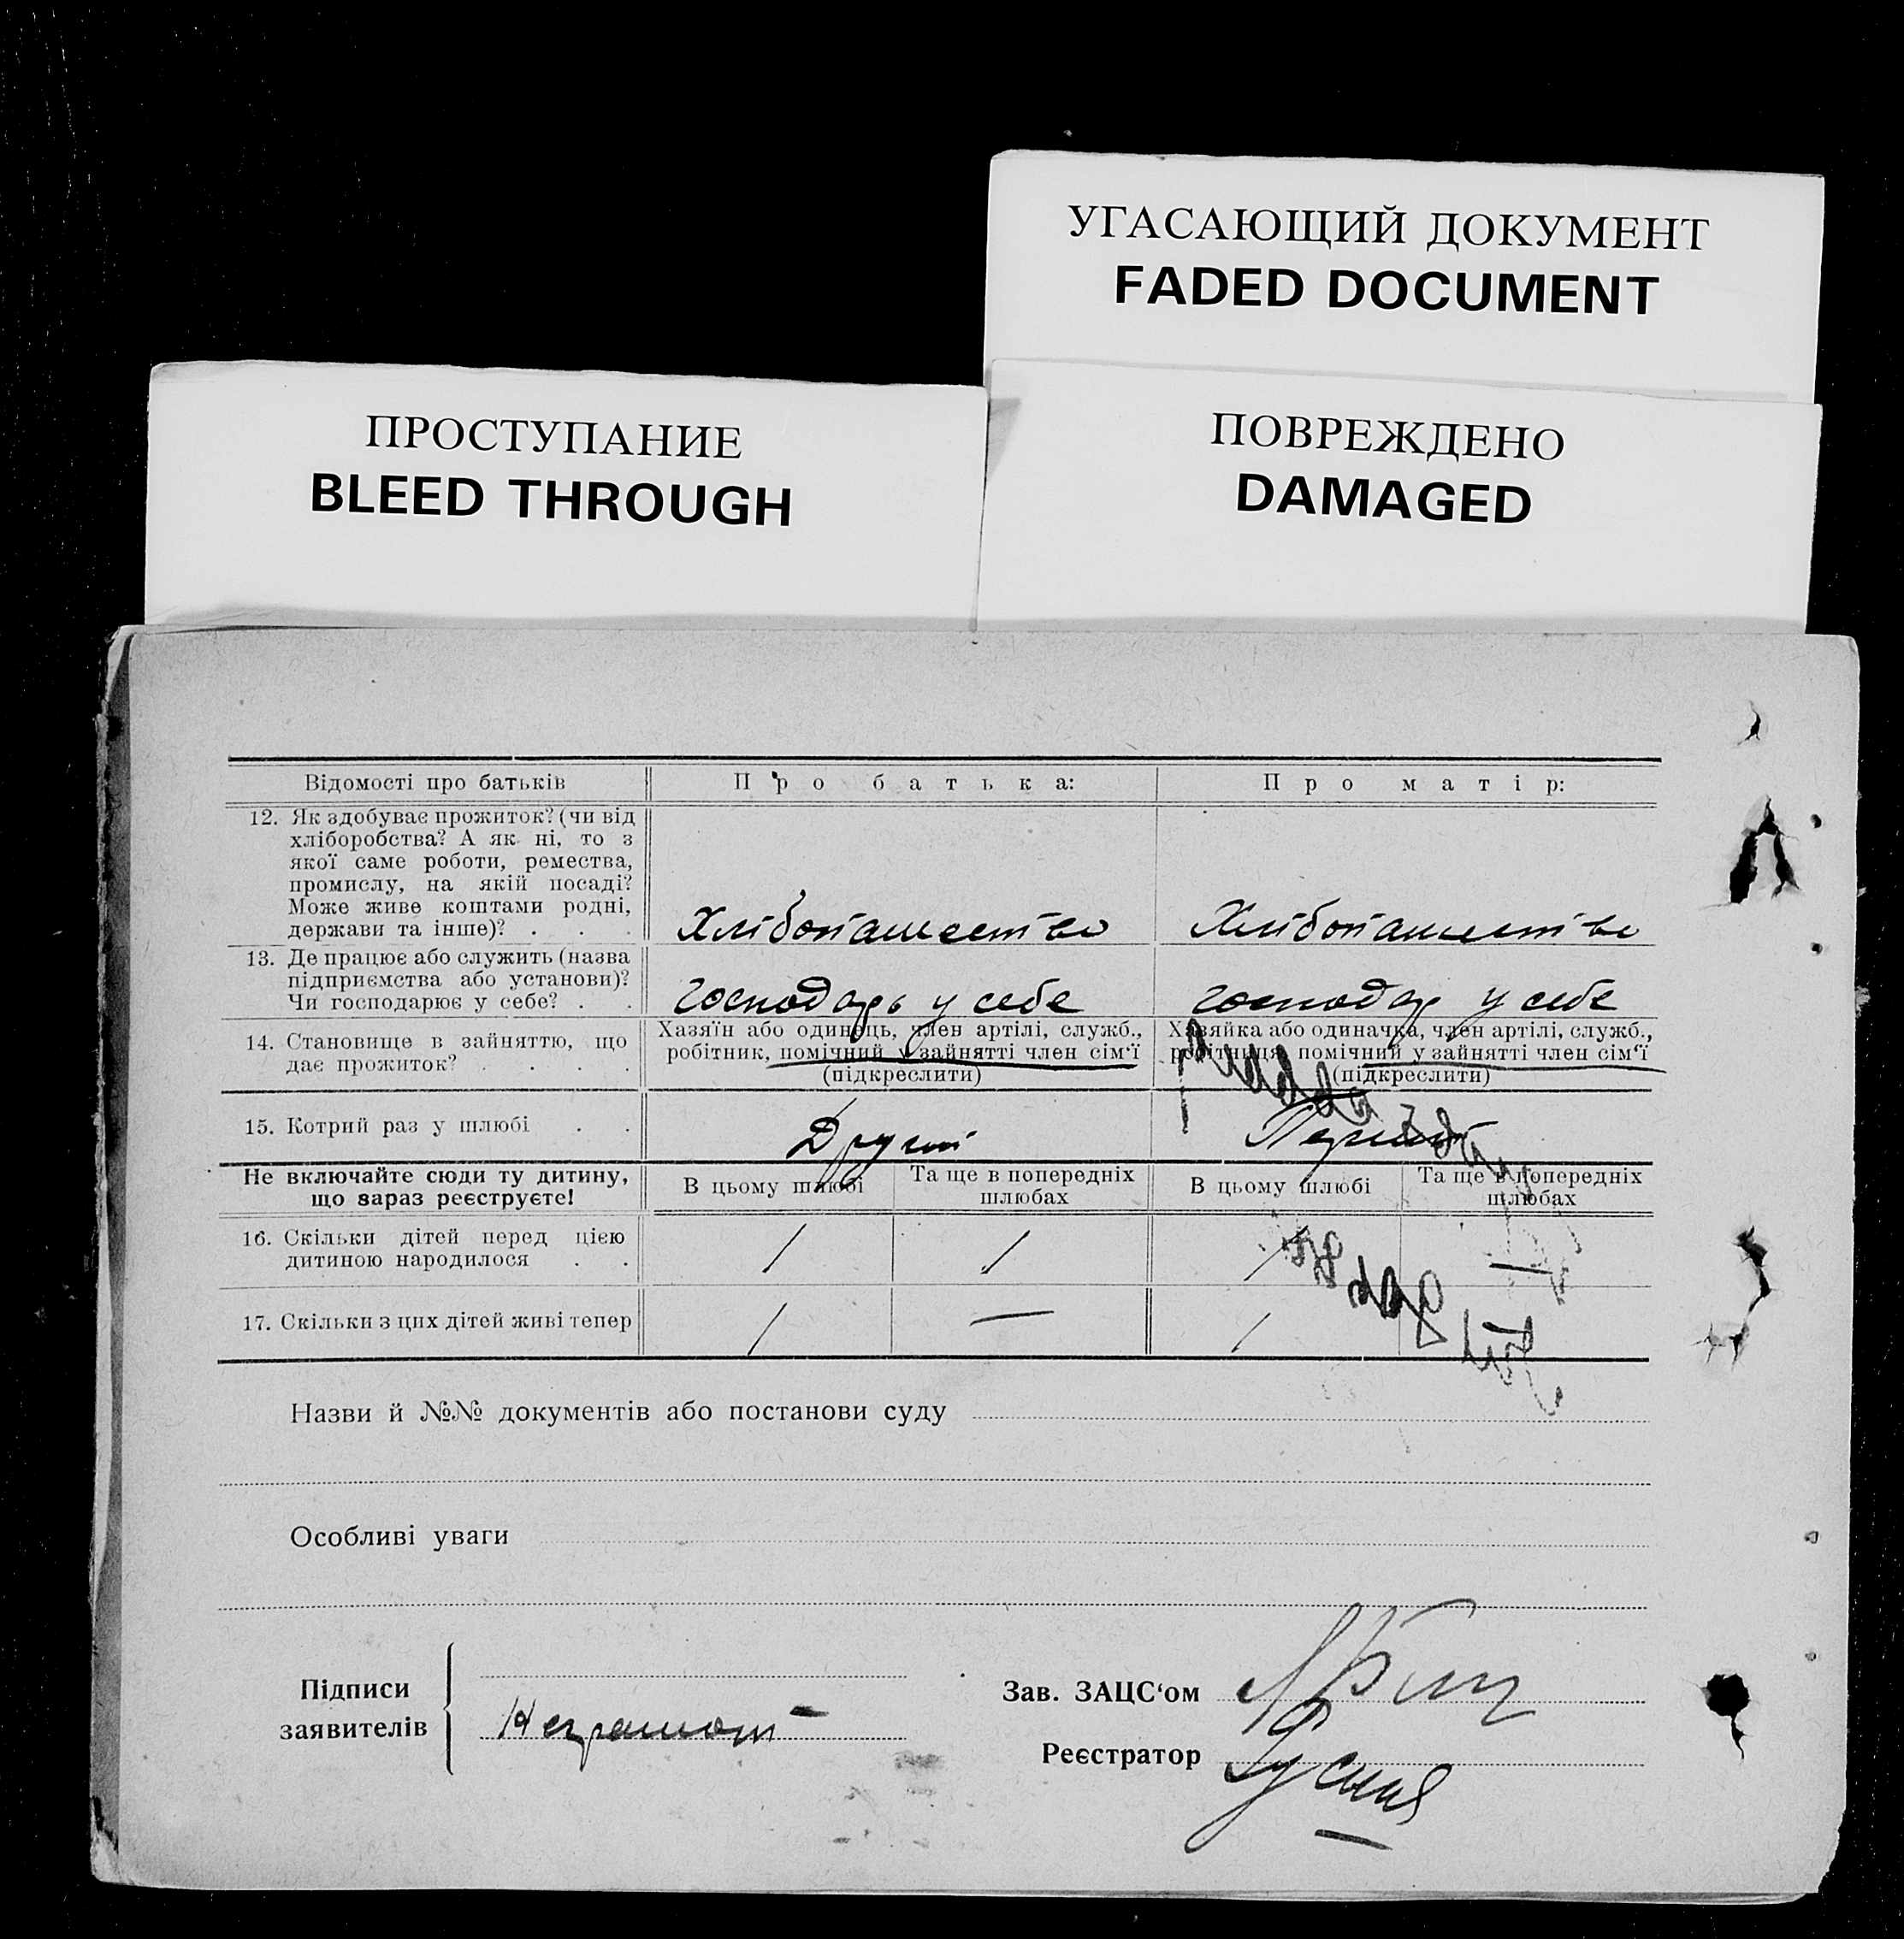 УГАСАЮЩИЙ ДОКУМЕНТ
FADED DOCUMENT
ПРОСТУПАНИЕ
BLEED THROUGH
ПОВРЕЖДЕНО
DAMAGED
Відомості про батьків
Про батька:
Про матір:
12. Як здобуває прожиток? (чи від
хліборобства? А як ні, то з
якої саме роботи, ремества,
промислу, на якій посаді?
Може живе коштами родні,
держави та інше)? . . .
Хлібопашество
Хлібопашество
13. Де працює або служить (назва
підприємства або установи)?
Чи господарює у себе? . .
Господарь у себе
Господар у себе
14. Становище в зайняттю, що
дає прожиток? . . . .
Хазяїн або одинець, член артілі, служб.,
робітник, помічний у зайнятті член сім‘ї
(підкреслити)
Хазяйка або одиначка, член артілі, служб.,
робітниця, помічний у зайнятті член сім‘ї
(підкреслити)
15. Котрий раз у шлюбі . .
Другий
Первий
Не включайте сюди ту дитину,
що зараз реєструєте!
В цьому шлюбі
Та ще в попередніх
шлюбах
В цьому шлюбі
Та ще в попередніх
шлюбах
16. Скільки дітей перед цією
дитиною народилося . .
/ / / —
17. Скільки з цих дітей живі тепер
/ — /
Назви й №№ документів або постанови суду
Особливі уваги
Підписи
заявителів
Неграмот
Зав. ЗАЦС‘ом
Реєстратор